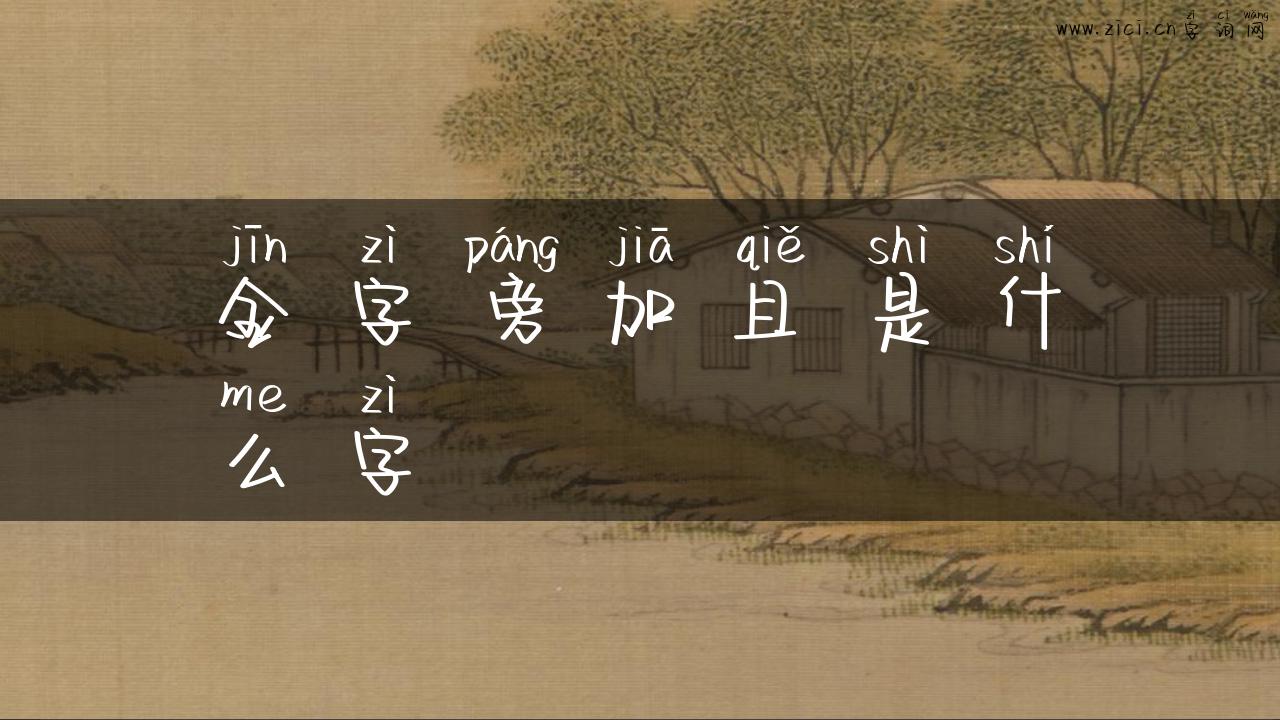 zì cí wǎng
www.zici.cn 字 词 网
jīn zì páng jiā qiě shì shí
金 字 旁 加 且 是 什
me zì
么 字